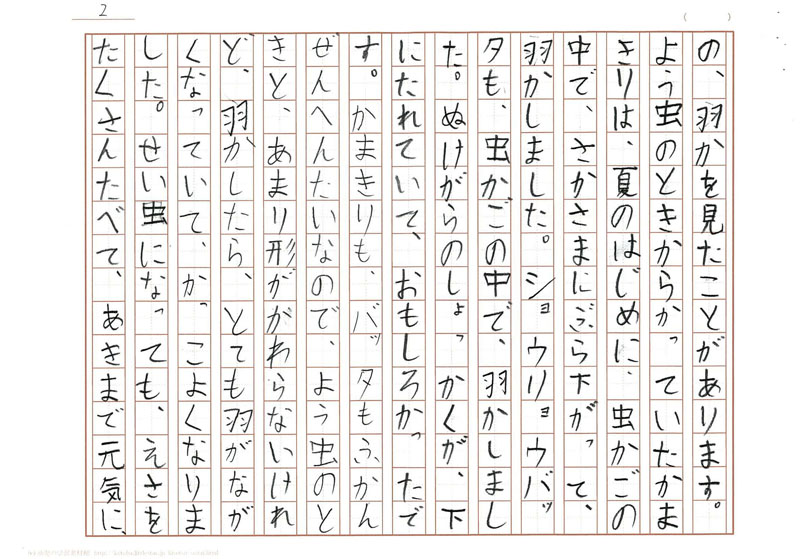 2
の、羽かを見たことがあります。
よう虫のときからかっていたかま
きりは、夏のはじめに、虫かごの
中で、さかさまにぶら下がって、
羽かしました。ショウリョウバッ
タも、虫かごの中で、羽かしまし
た。ぬけがらのしょっかくが、下
にたれていて、おもしろかったで
す。かまきりも、バッタもふかん
ぜんへんたいなので、よう虫のと
きと、あまり形ががわらないけれ
ど、羽かしたら、とても羽がなが
くなっていて、かっこよくなりま
した。せい虫になっても、えさを
たくさんたべて、あきまで元気に、